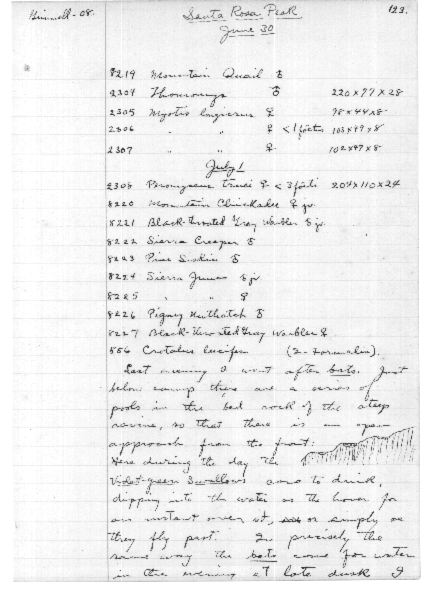 Grinnell-08. Santa Rosa Peak 123.
June 30
8219 Mountain Quail ♂
2304 Thomomys ♂ 220 x 77 x 28
2305 Myotis ♀ 98 x 44 x 8
2306 " " ♀ < 1 foetus 103 x 47 x 8
2307 " " ♀ 102 x 47 x 8
July 1
2308 Peromyscus truei ♀ < 3 foeti 204 x 110 x 24
8220 Mountain Chickadee ♀ jv
8221 Black-throated Gray Warbler ♂ jv
8222 Sierra Creeper ♂
8223 Pine Siskin ♂
8224 Sierra Junco ♀ jv
8225 " " ♀
8226 Pigmy Nuthatch ♂
8227 Black-throated Gray Warbler ♀
556 Crotalus lucifer (2-formalin).
Last evening I went after bats. Just
below camp there are a series of
pools in the bed rock of the steep
ravine, so that there is an open
approach from the front:
Here during the day the
Violet-green Swallows come to drink,
dipping into the water as they hover for
an instant over it, or simply as
they fly past. In precisely the
same way the bats come for water
in the evening. At late dusk I